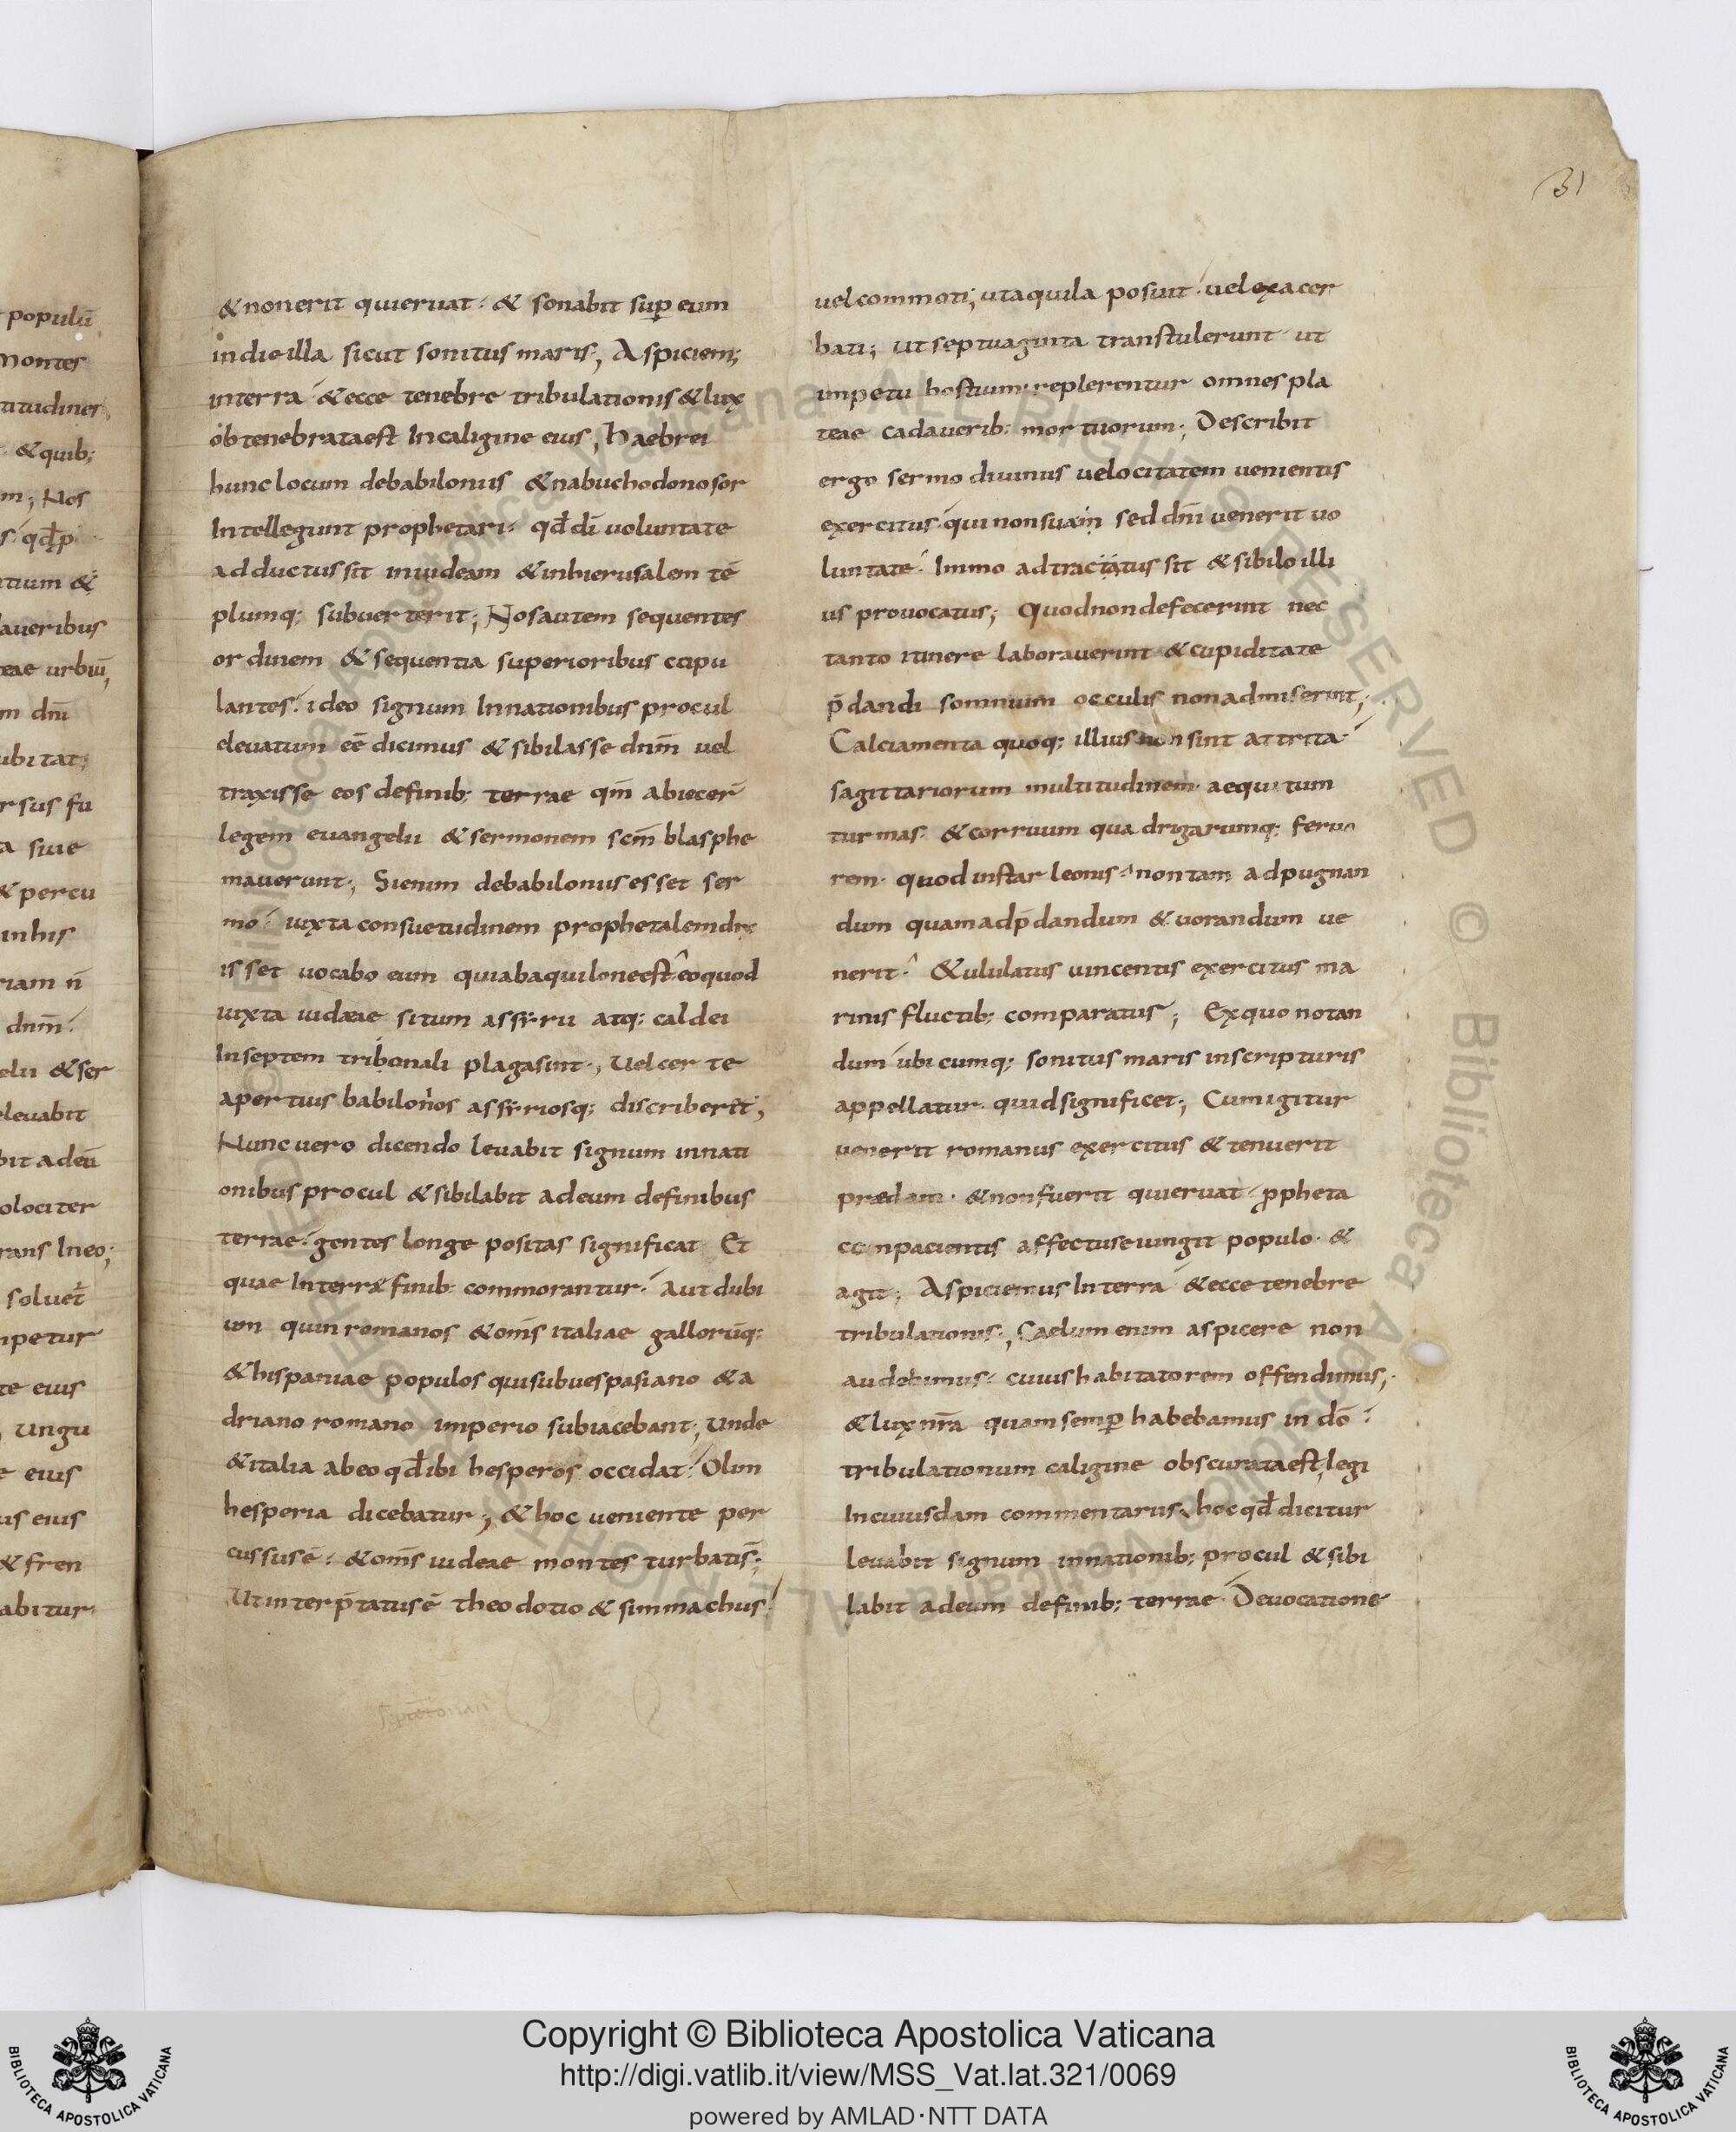 31
populū
Montes
titudines,
&quib;
m; Nos
s qđp
tium &
daveribus
teae urbiū,
m dnī
ubi tat;
rsus fu
a siue
& percu
inhis
riam n̄
dnm̄.
elii &ser
elevabit
bit adeū
olociter
rans Ineo;
soluet̄
mpetur
te eius
Ungu
e eius
us eius
& fren
abitur
& nonerit quieruat. & sonabit sup eum
indieilla sicut sonitus maris; Aspiciem;
interra &ecce tenebre tribulationis &lux
obtenebrataest Incaligine eius; Haebrei
hunc locum debabilonus &nabuchodonosor
Intellegunt prophetari. qđ dī voluntate
adductus sit in iudeam & inhierusalem tē
plumq; subuerterit; Nosautem sequentes
ordinem & sequentia superioribus ccipu
lantes. ideo signum Innationibus procul
elevatum eē dicimus & sibilasse dnm̄ uel
traxisse eos definib; terrae qm̄ abiecer̄
legem euangelii & sermonem scm̄ blasphe
mauerunt; Sienim debabilonus esset ser
mo. iuxta consuetudinem prophetalem dix
isset uocabo eum quiabaquiloneest eoquod
iuxta iudaeae situm assyrii atq; caldei
Inseptem tribonali plagasint; Uelcer te
apertius babilonios assyriosq; discriberet;
Nunc uero dicendo levabit signum innati
onibus procul & sibilabit adeum definibus
terrae. gentes longe positas significat Et
quae Interrae finib; commorantur. Aut dubi
um quin romanos & omīs italiae gallorūq;
& hispaniae populos quisubuespasiano & a
driano romano imperio subiacebant; Unde
& italia abeo qđ ibi hesperos occidat. Olim
hesperia dicebatur; & hoc ueniente per
cussus ē. & omīs iudeae montes turbatis̄;
Utinterp̄tatus ē theodotio & simmachus
uelcommoti; utaquila posuit. uelexacer
bati; ut septuaginta transtulerunt ut
impetu hostium replerentur omnes pla
teae cadauerib; mortuorum; Describit
ergo sermo diuinus uelocitatem uenientis
exercitus. qui nonsuam sed dnī uenerit uo
luntate. Immo adtractatus sit & sibilo illi
us prouocatus; Quodnondefecerint nec
tanto itinere laborauerint & cupiditate
p̄dandi somnium occulis nonadmiserint;
Calciamenta quoq; illius non sint attrita
sagittariorum multitudinem aequitum
turmas. & corruum quadrigarumq; feruo
rem. quod instar leonis. nontam adpugnan
dum quamadp̄dandum & uorandum ue
nerit. & ululatus uincentis exercitus ma
rinis fluctib; comparatus; Exquo notan
dum ubicumq; sonitus maris inscripturis
appellatur. quidsignificet; Cumigitur
uenerit romanus exercitus & tenuerit
praedam. & nonfuerit quieruat. ppheta
conpacientis affectuseuingit populo. &
agit; Aspiciemus Interra & ecce tenebre
tribulationis; Caelum enim aspicere non
audebimus. cuius habitatorem offendimus;
& lux nr̄a quamsemp habebamus in dō
tribulationum caligine obscurataest; legi
Incuiusdam commentariis. hoc qđ dicitur
leuabit signum innationib; procul & sibi
labit adeum definib; terrae. Deuocatione
Copyright © Biblioteca Apostolica Vaticana
http://digi.vatlib.it/view/MSS_Vat.lat.321/0069
powered by AMLAD·NTT DATA
BIBLIOTECA APOSTOLICA VATICANA
BIBLIOTECA APOSTOLICA VATICANA